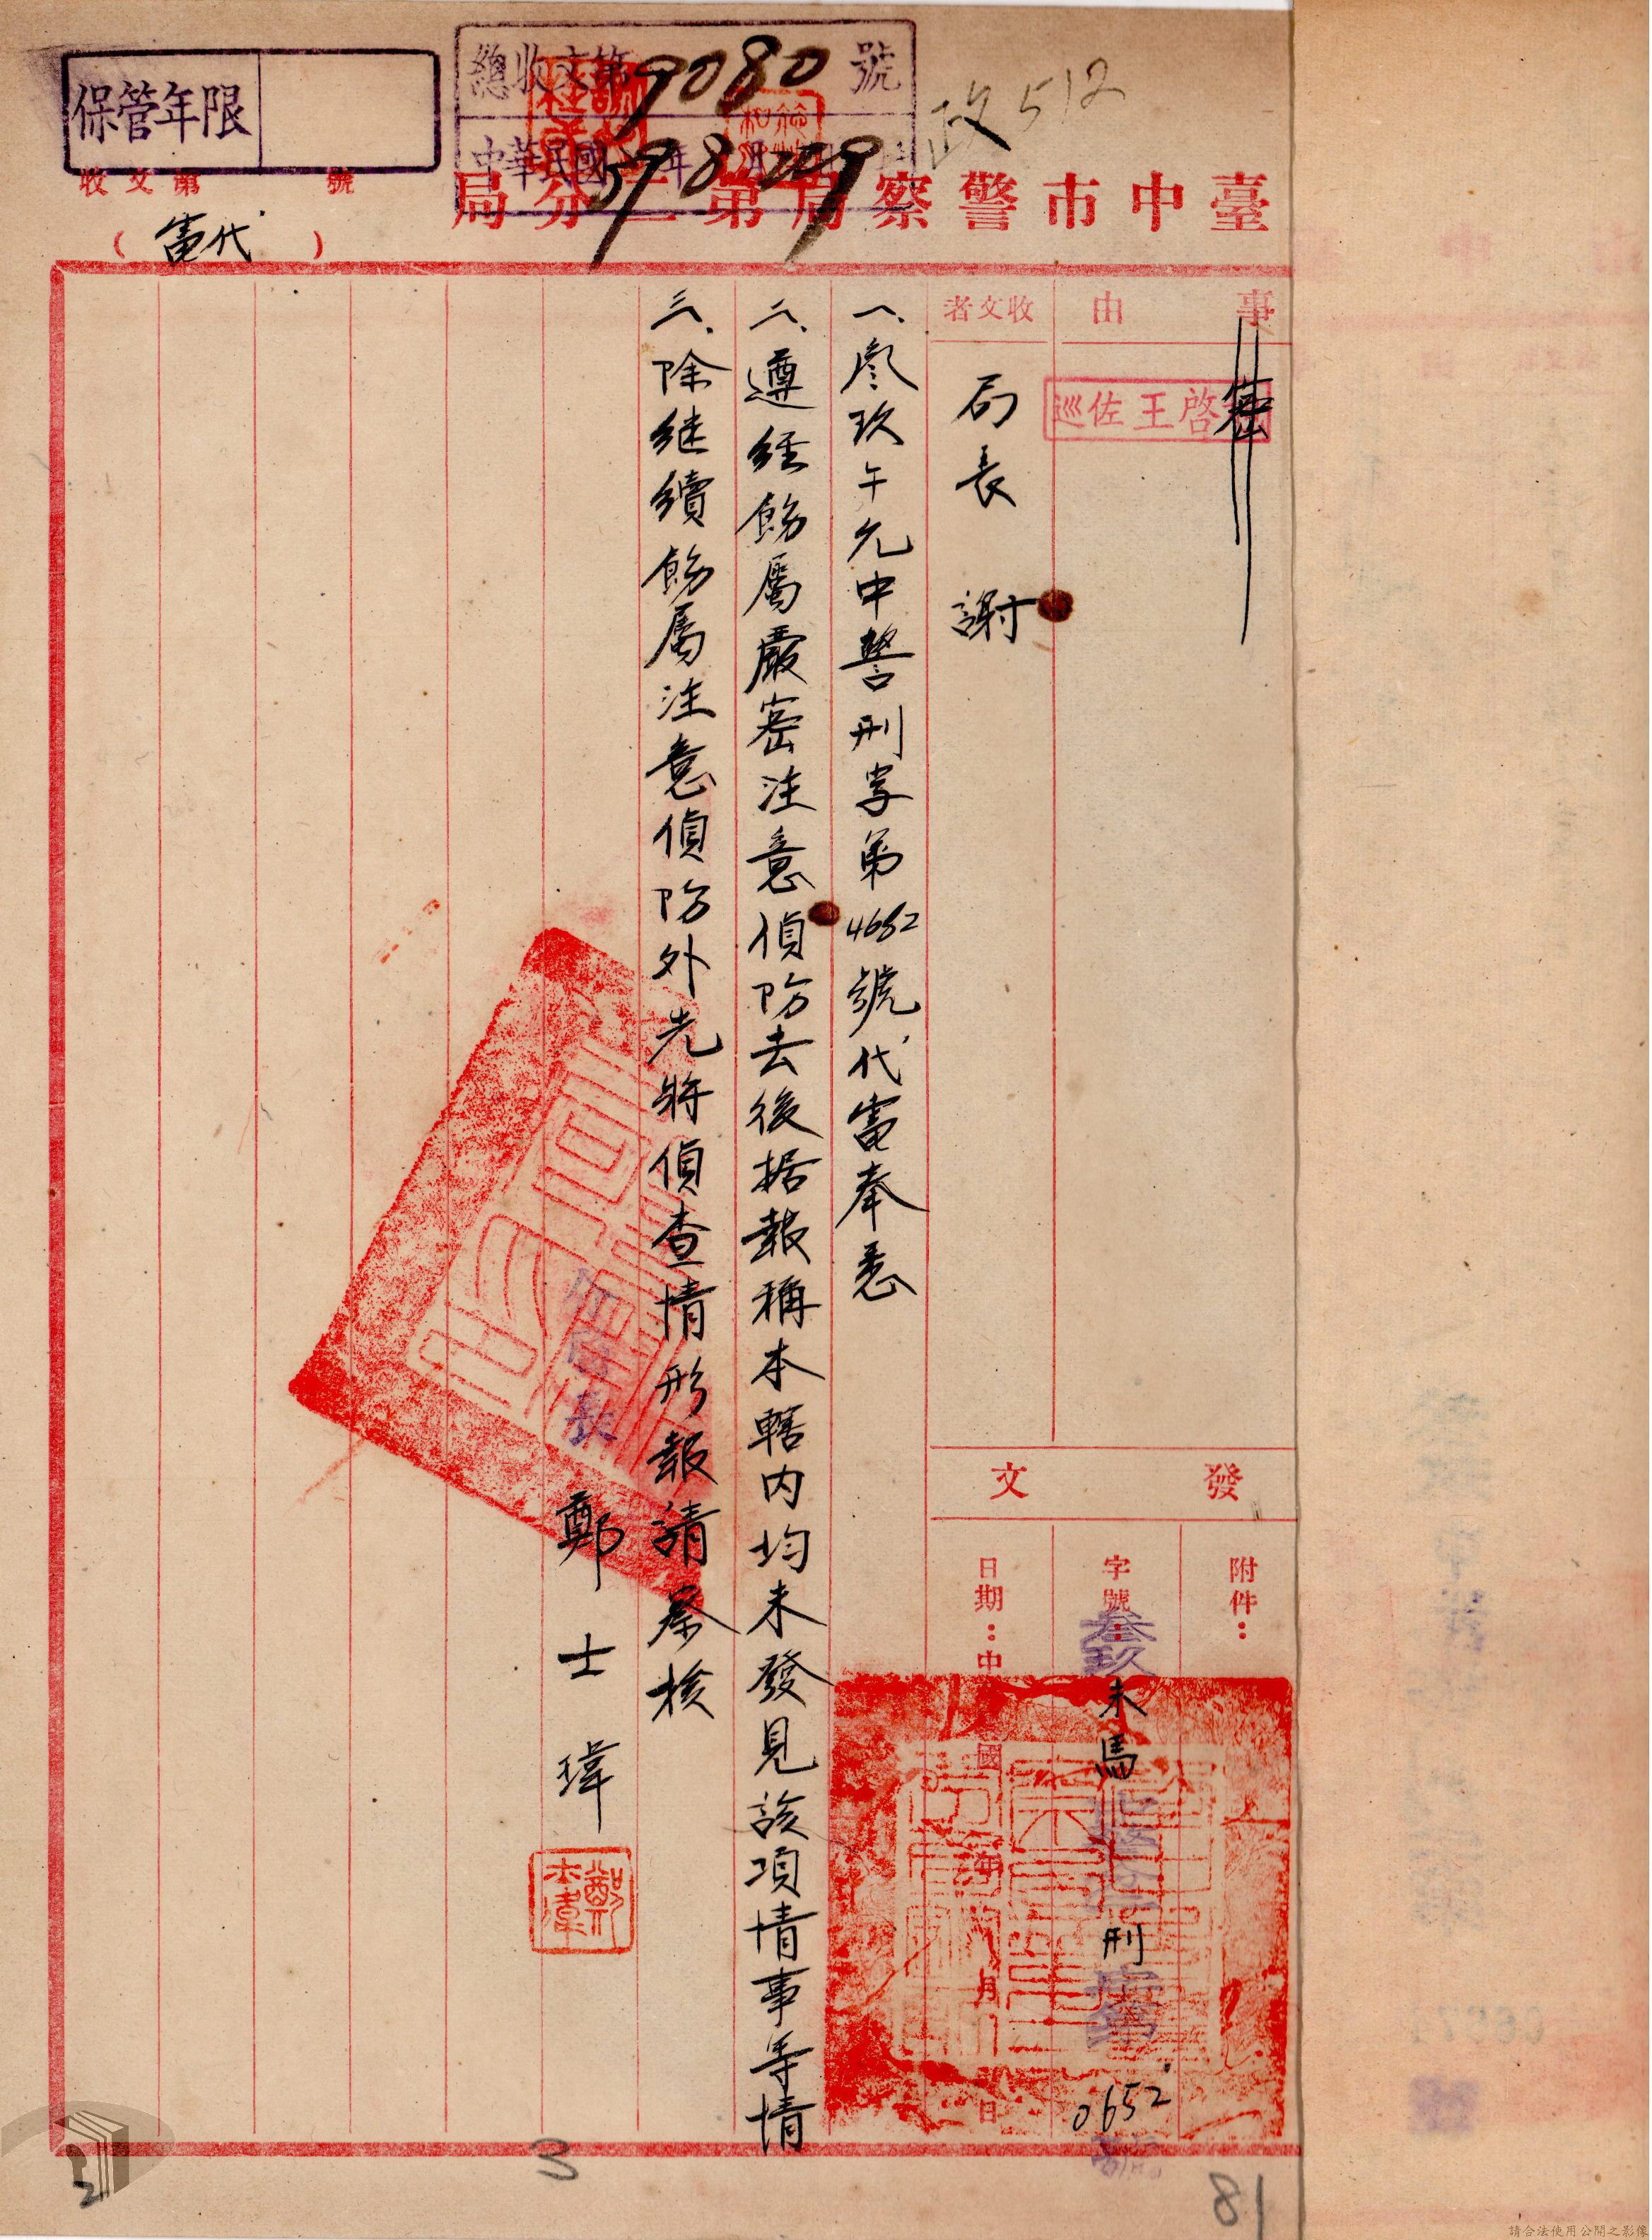 保管年限
總收文第9080號
中華民國 年 月
政512
收文第 號
(代電)
臺中市警察局第二分局
事由
密
巡佐王啓
收文者
局長 謝
發文
附件：
字號：叁玖未馬 刑字第0652號
日期：中 國 年 月 日
一、叁玖午元中警刑字第4682號代電奉悉
二、遵經飭屬嚴密注意偵防去後据報稱本轄内均未發見該項情事等情
三、除继續飭屬注意偵防外先将偵查情形報請察核
分局長 鄭士瑋
鄭士瑋
2
3
81
請合法使用公開之影像